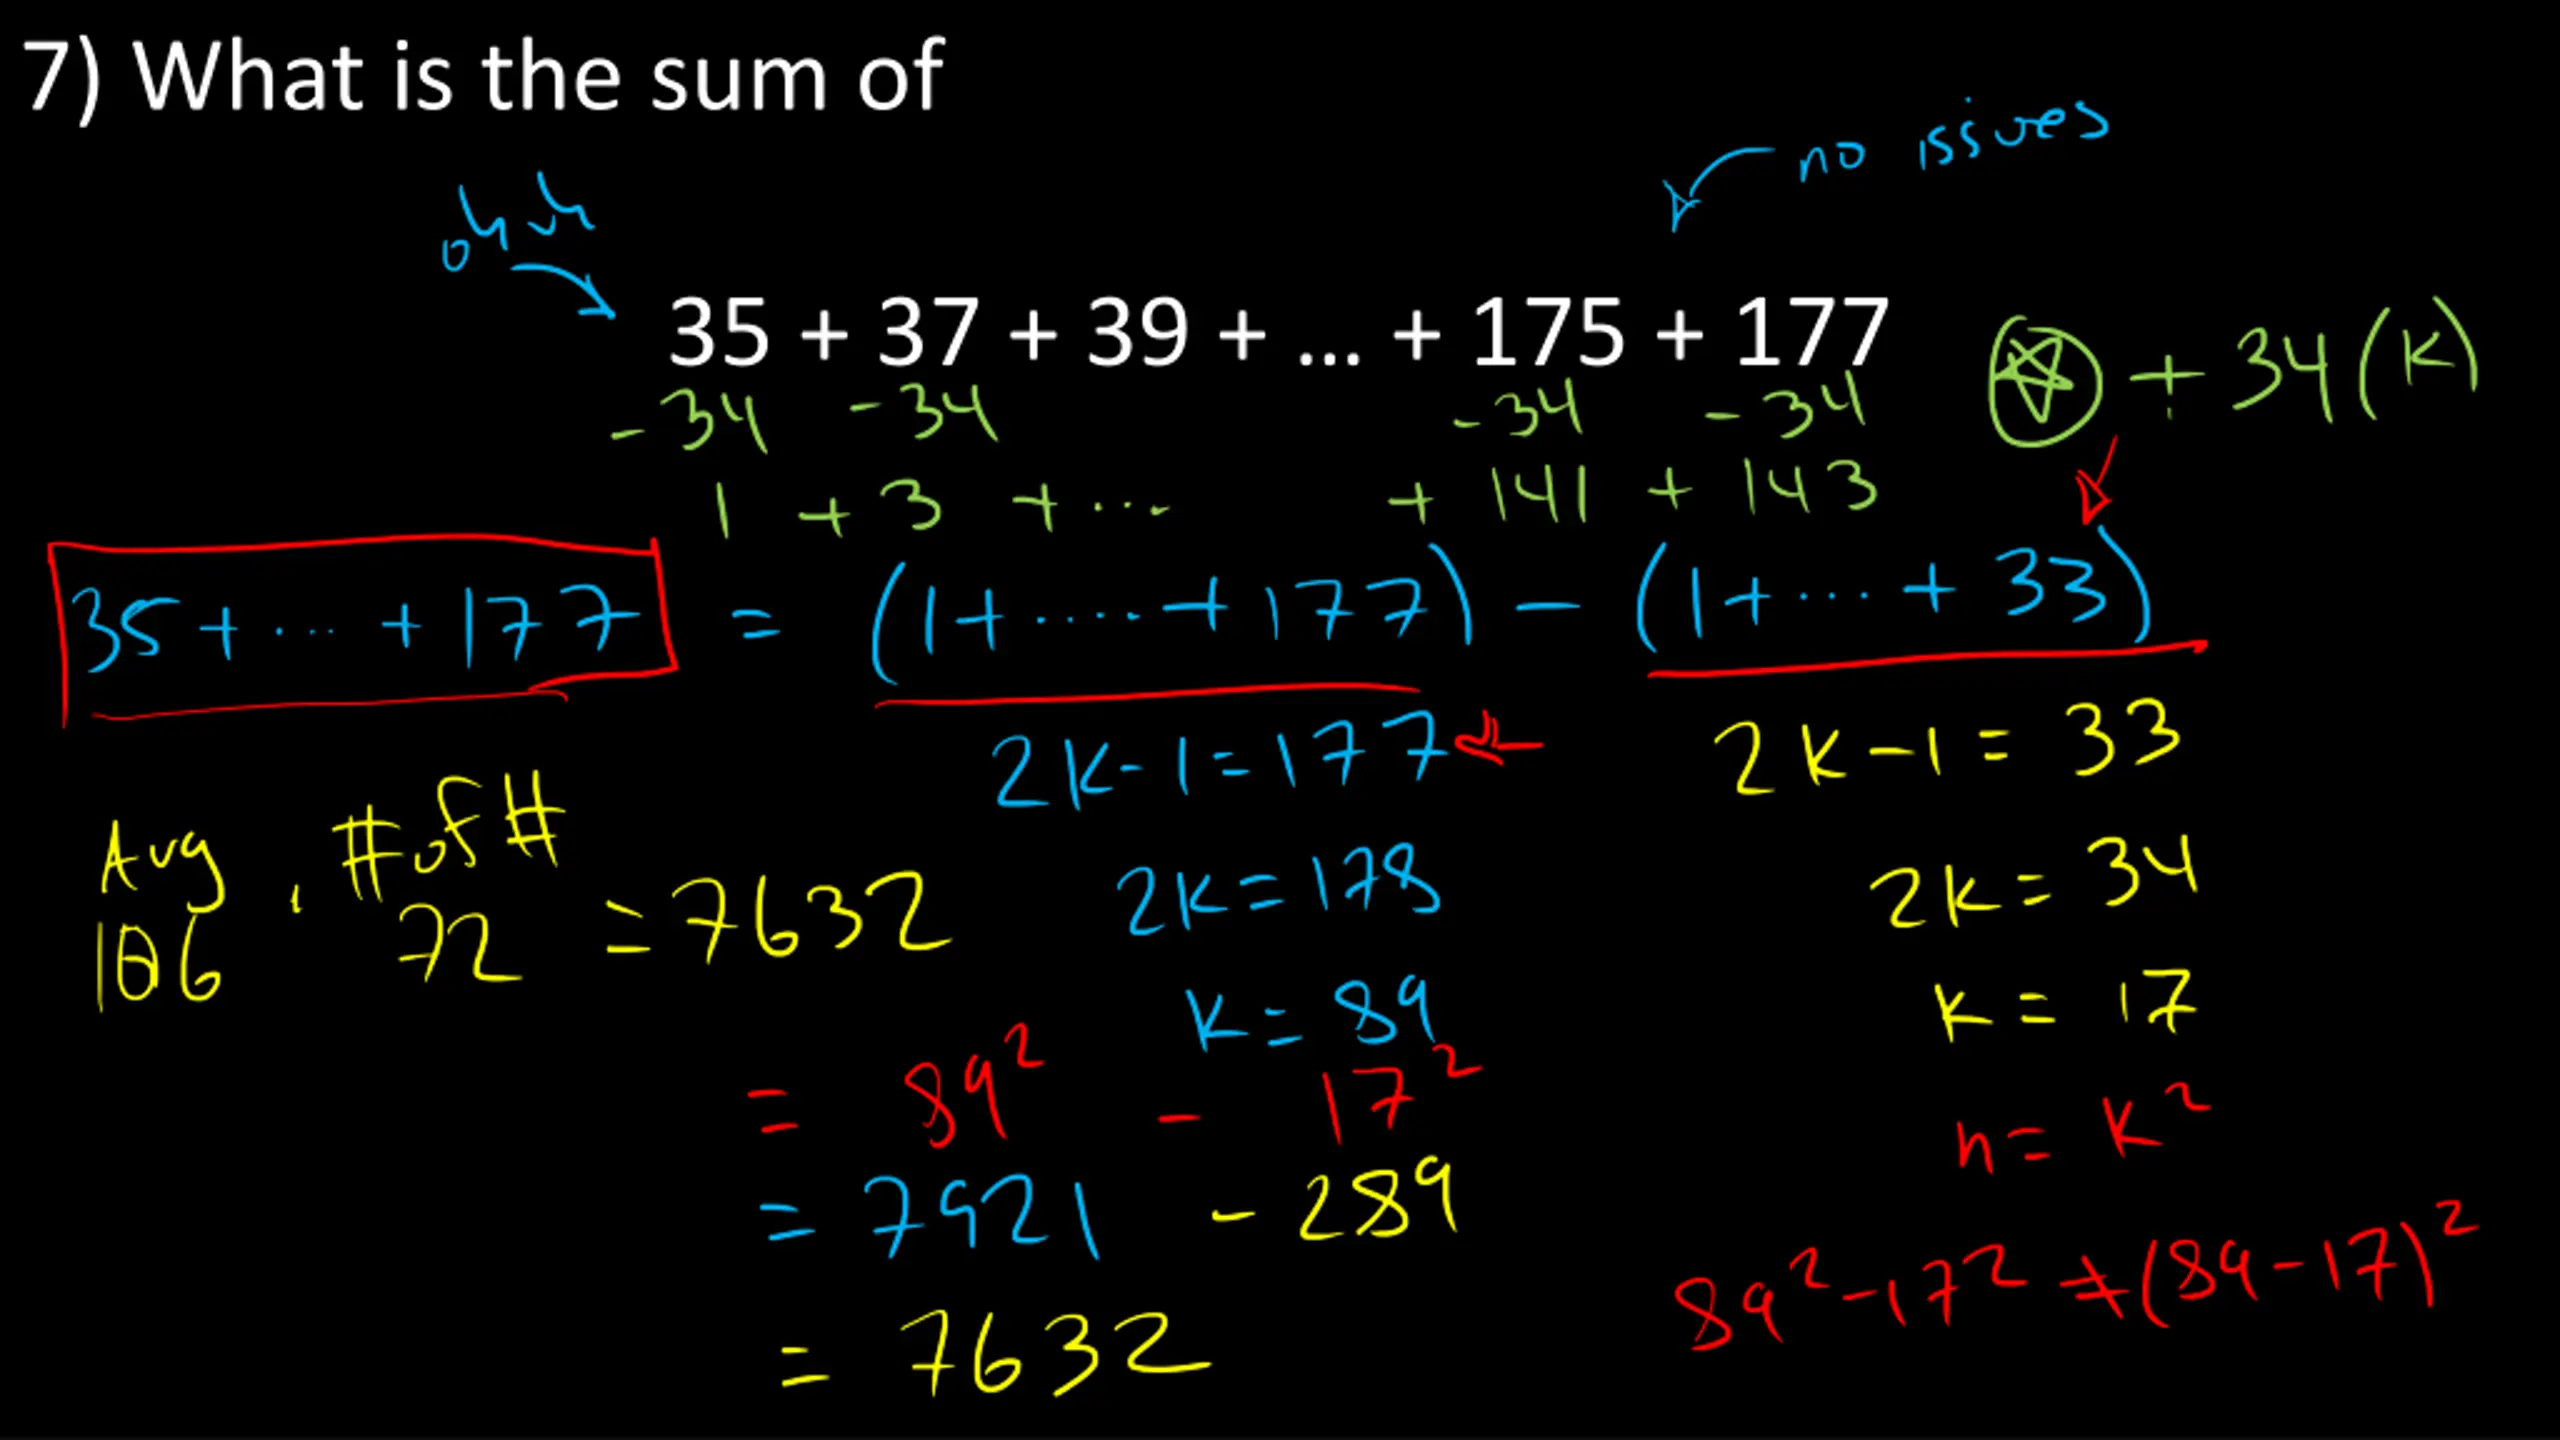 7) What is the sum of
no issues
35 + 37 + 39 + ... + 175 + 177
-34 -34 -34 -34
+ 34(k)
1 + 3 + ... + 141 + 143
35 + ... + 177 = (1 + .... + 177) - (1 + ... + 33)
2k-1=177
2k-1=33
Avg . # of #
2k=178
2k=34
106 72 =7632
k=89
k=17
= 89² - 17²
n=k²
= 7921 - 289
89²-17² ≠ (89-17)²
= 7632